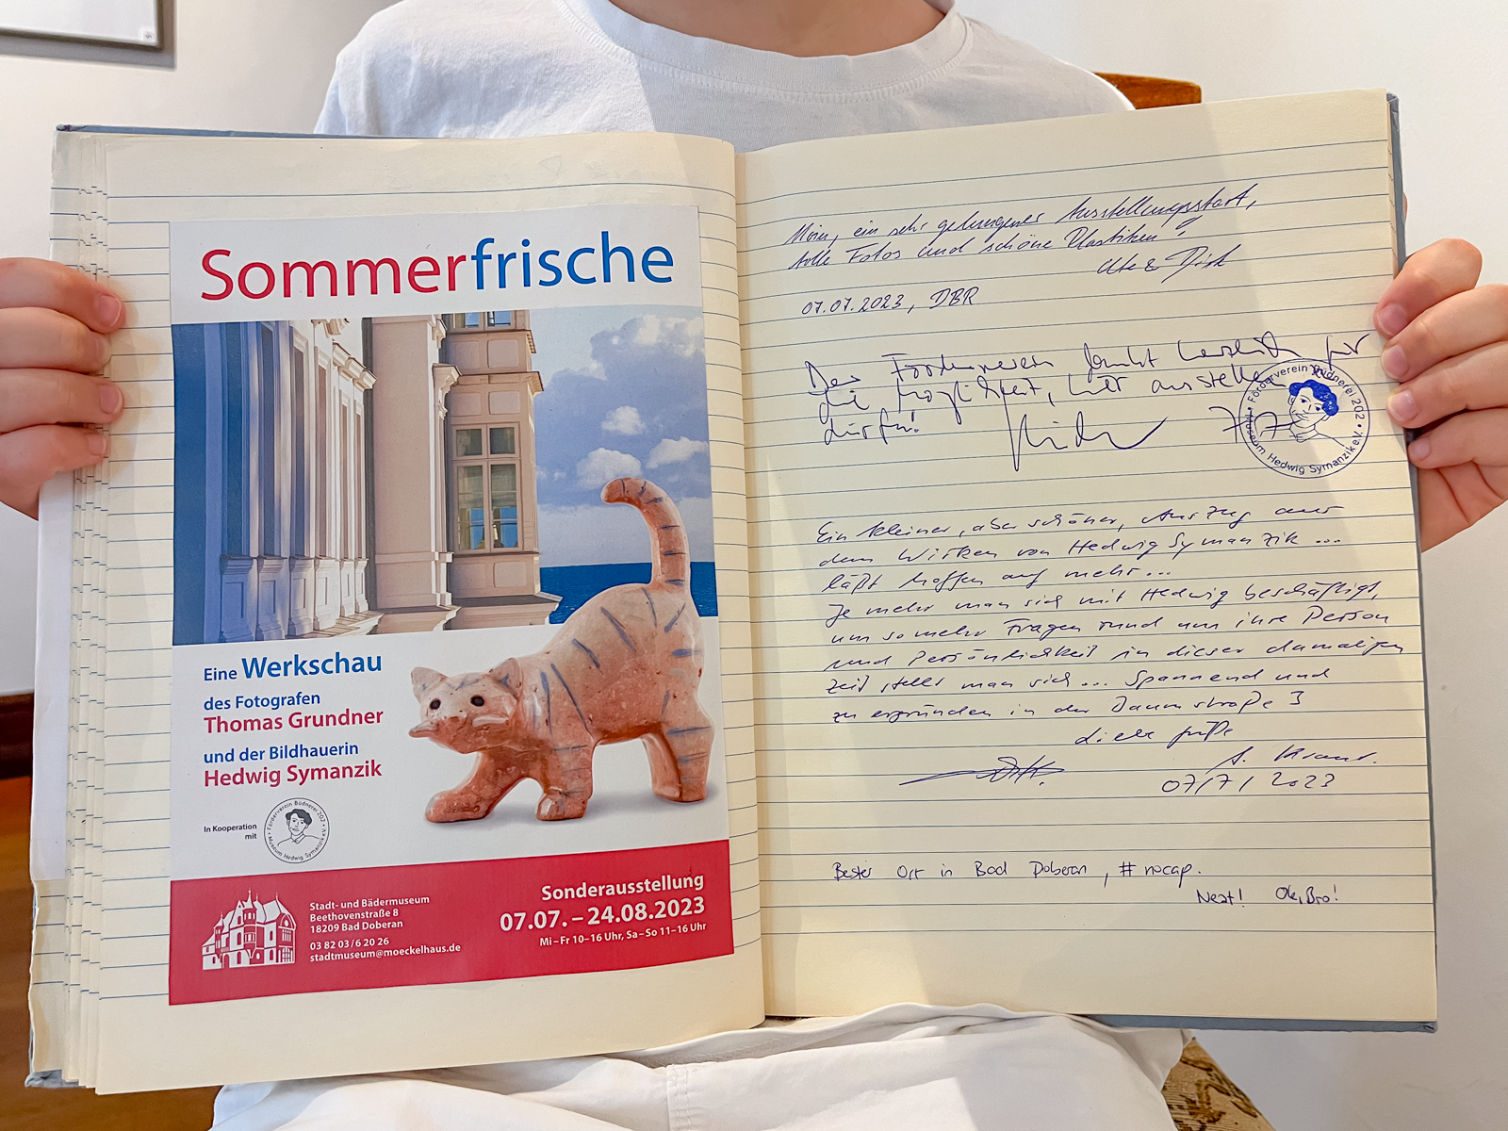 Sommerfrische
Eine Werkschau
des Fotografen
Thomas Grundner
und der Bildhauerin
Hedwig Symanzik
In Kooperation
mit
Förderverein Büdnerei 202 e.V.
Museum Hedwig Symanzik
Stadt- und Bädermuseum
Beethovenstraße 8
18209 Bad Doberan
03 82 03/6 20 26
stadtmuseum@moeckelhaus.de
Sonderausstellung
07.07. – 24.08.2023
Mi – Fr 10–16 Uhr, Sa – So 11–16 Uhr
Moin, ein sehr gelungener Ausstellungsstart,
tolle Fotos und schöne Plastiken!
Ute & Dirk
07.07.2023, DBR
Der Förderverein dankt herzlich für
die Möglichkeit, hier ausstellen zu
dürfen!
7.7.
Förderverein Büdnerei 202 e.V.
Museum Hedwig Symanzik
Ein kleiner, aber schöner, Auszug aus
dem Wirken von Hedwig Symanzik ...
läßt hoffen auf mehr ...
Je mehr man sich mit Hedwig beschäftigt,
um so mehr Fragen rund um ihre Person
und Persönlichkeit in dieser damaligen
Zeit stellt man sich ... Spannend und
zu ergründen in der Dammstraße 3
Liebe Grüße
07/7/2023
Bester Ort in Bad Doberan, #nocap.
Neat! Ok, Bro!